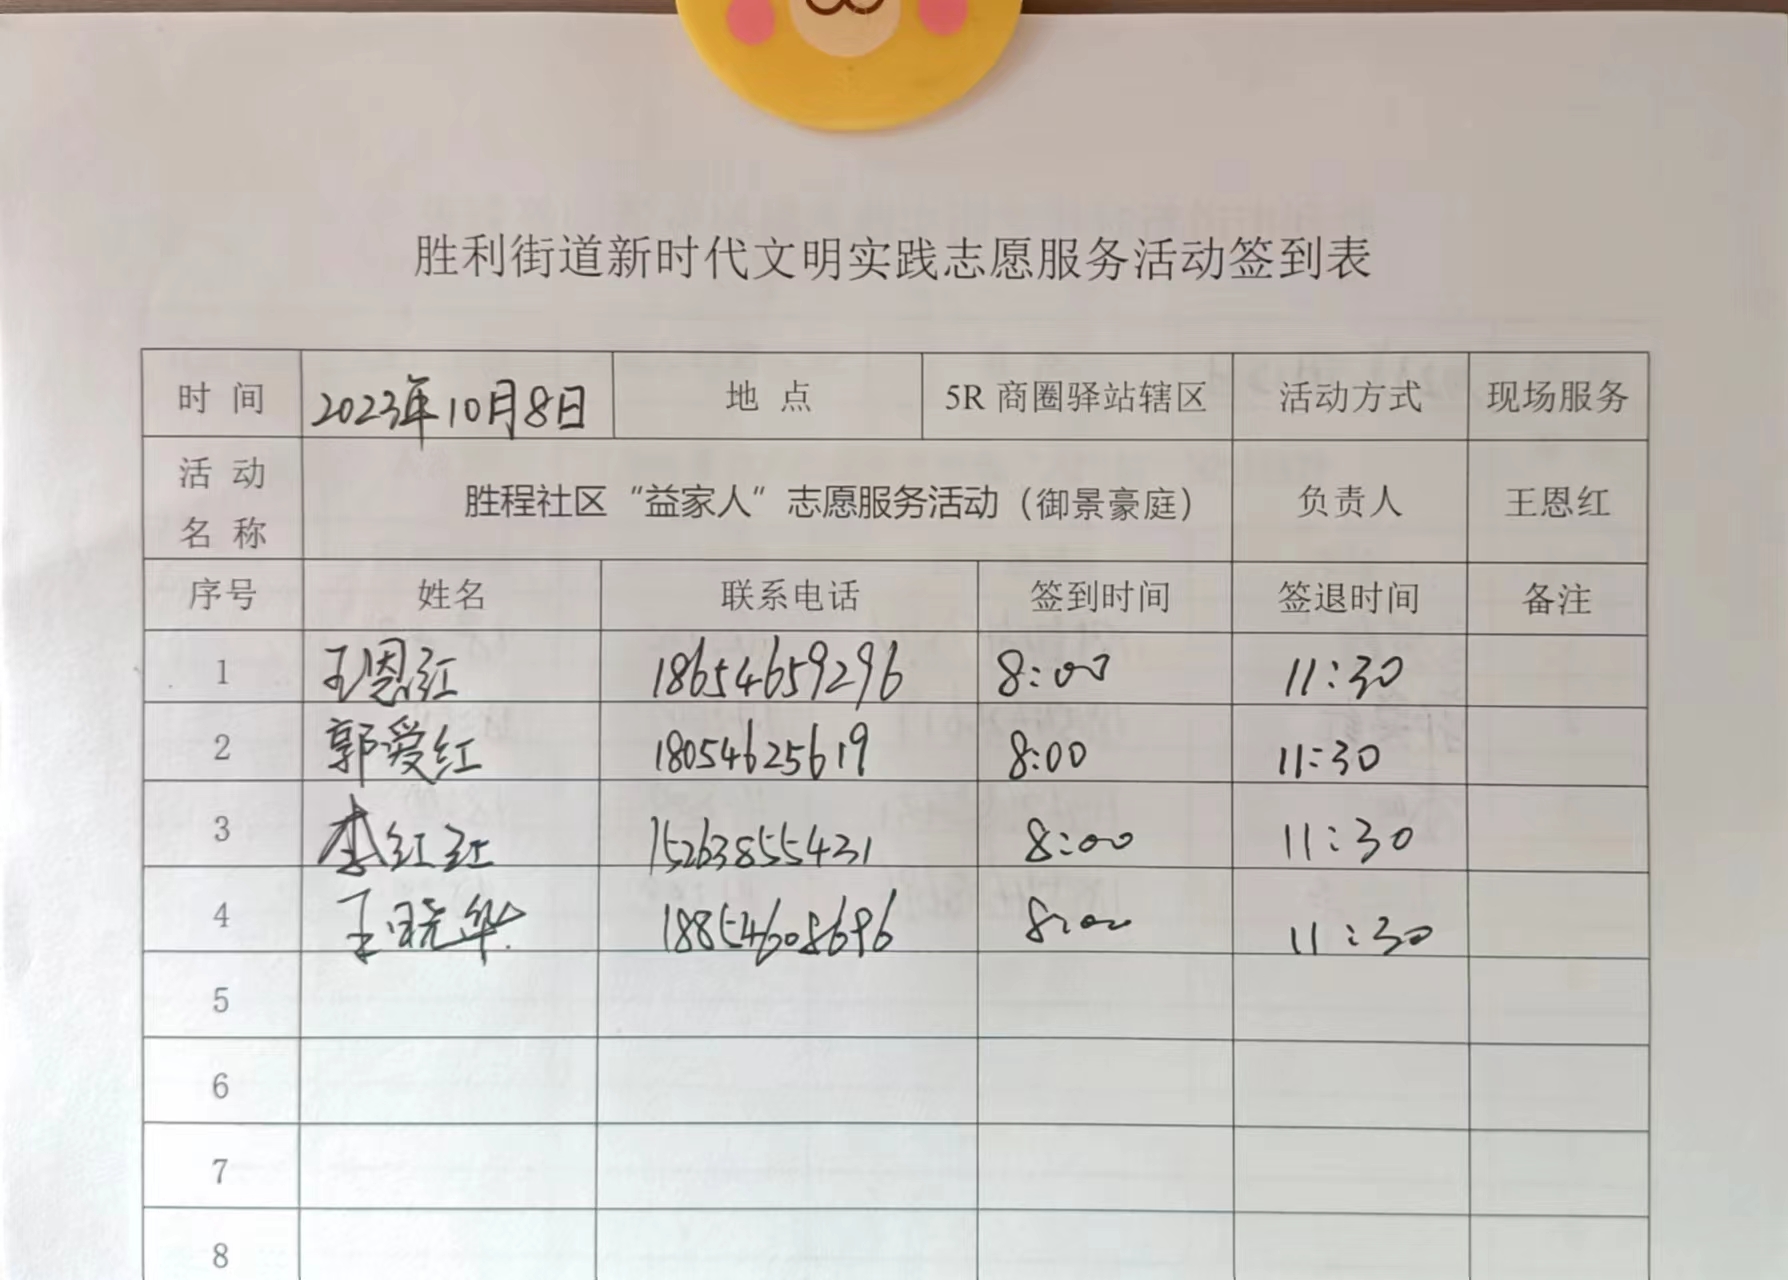 胜利街道新时代文明实践志愿服务活动签到表
时 间 2023年10月8日 地 点 5R 商圈驿站辖区 活动方式 现场服务
活 动
名 称 胜程社区“益家人”志愿服务活动（御景豪庭） 负责人 王恩红
序号 姓名 联系电话 签到时间 签退时间 备注
1 王恩红 18654659296 8:00 11:30
2 郭爱红 18054625619 8:00 11:30
3 李红红 15263855431 8:00 11:30
4 王晓华 18854608696 8:00 11:30
5
6
7
8